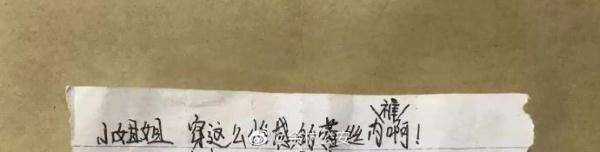 小姐姐 穿这么性感的蕾丝内裤啊!